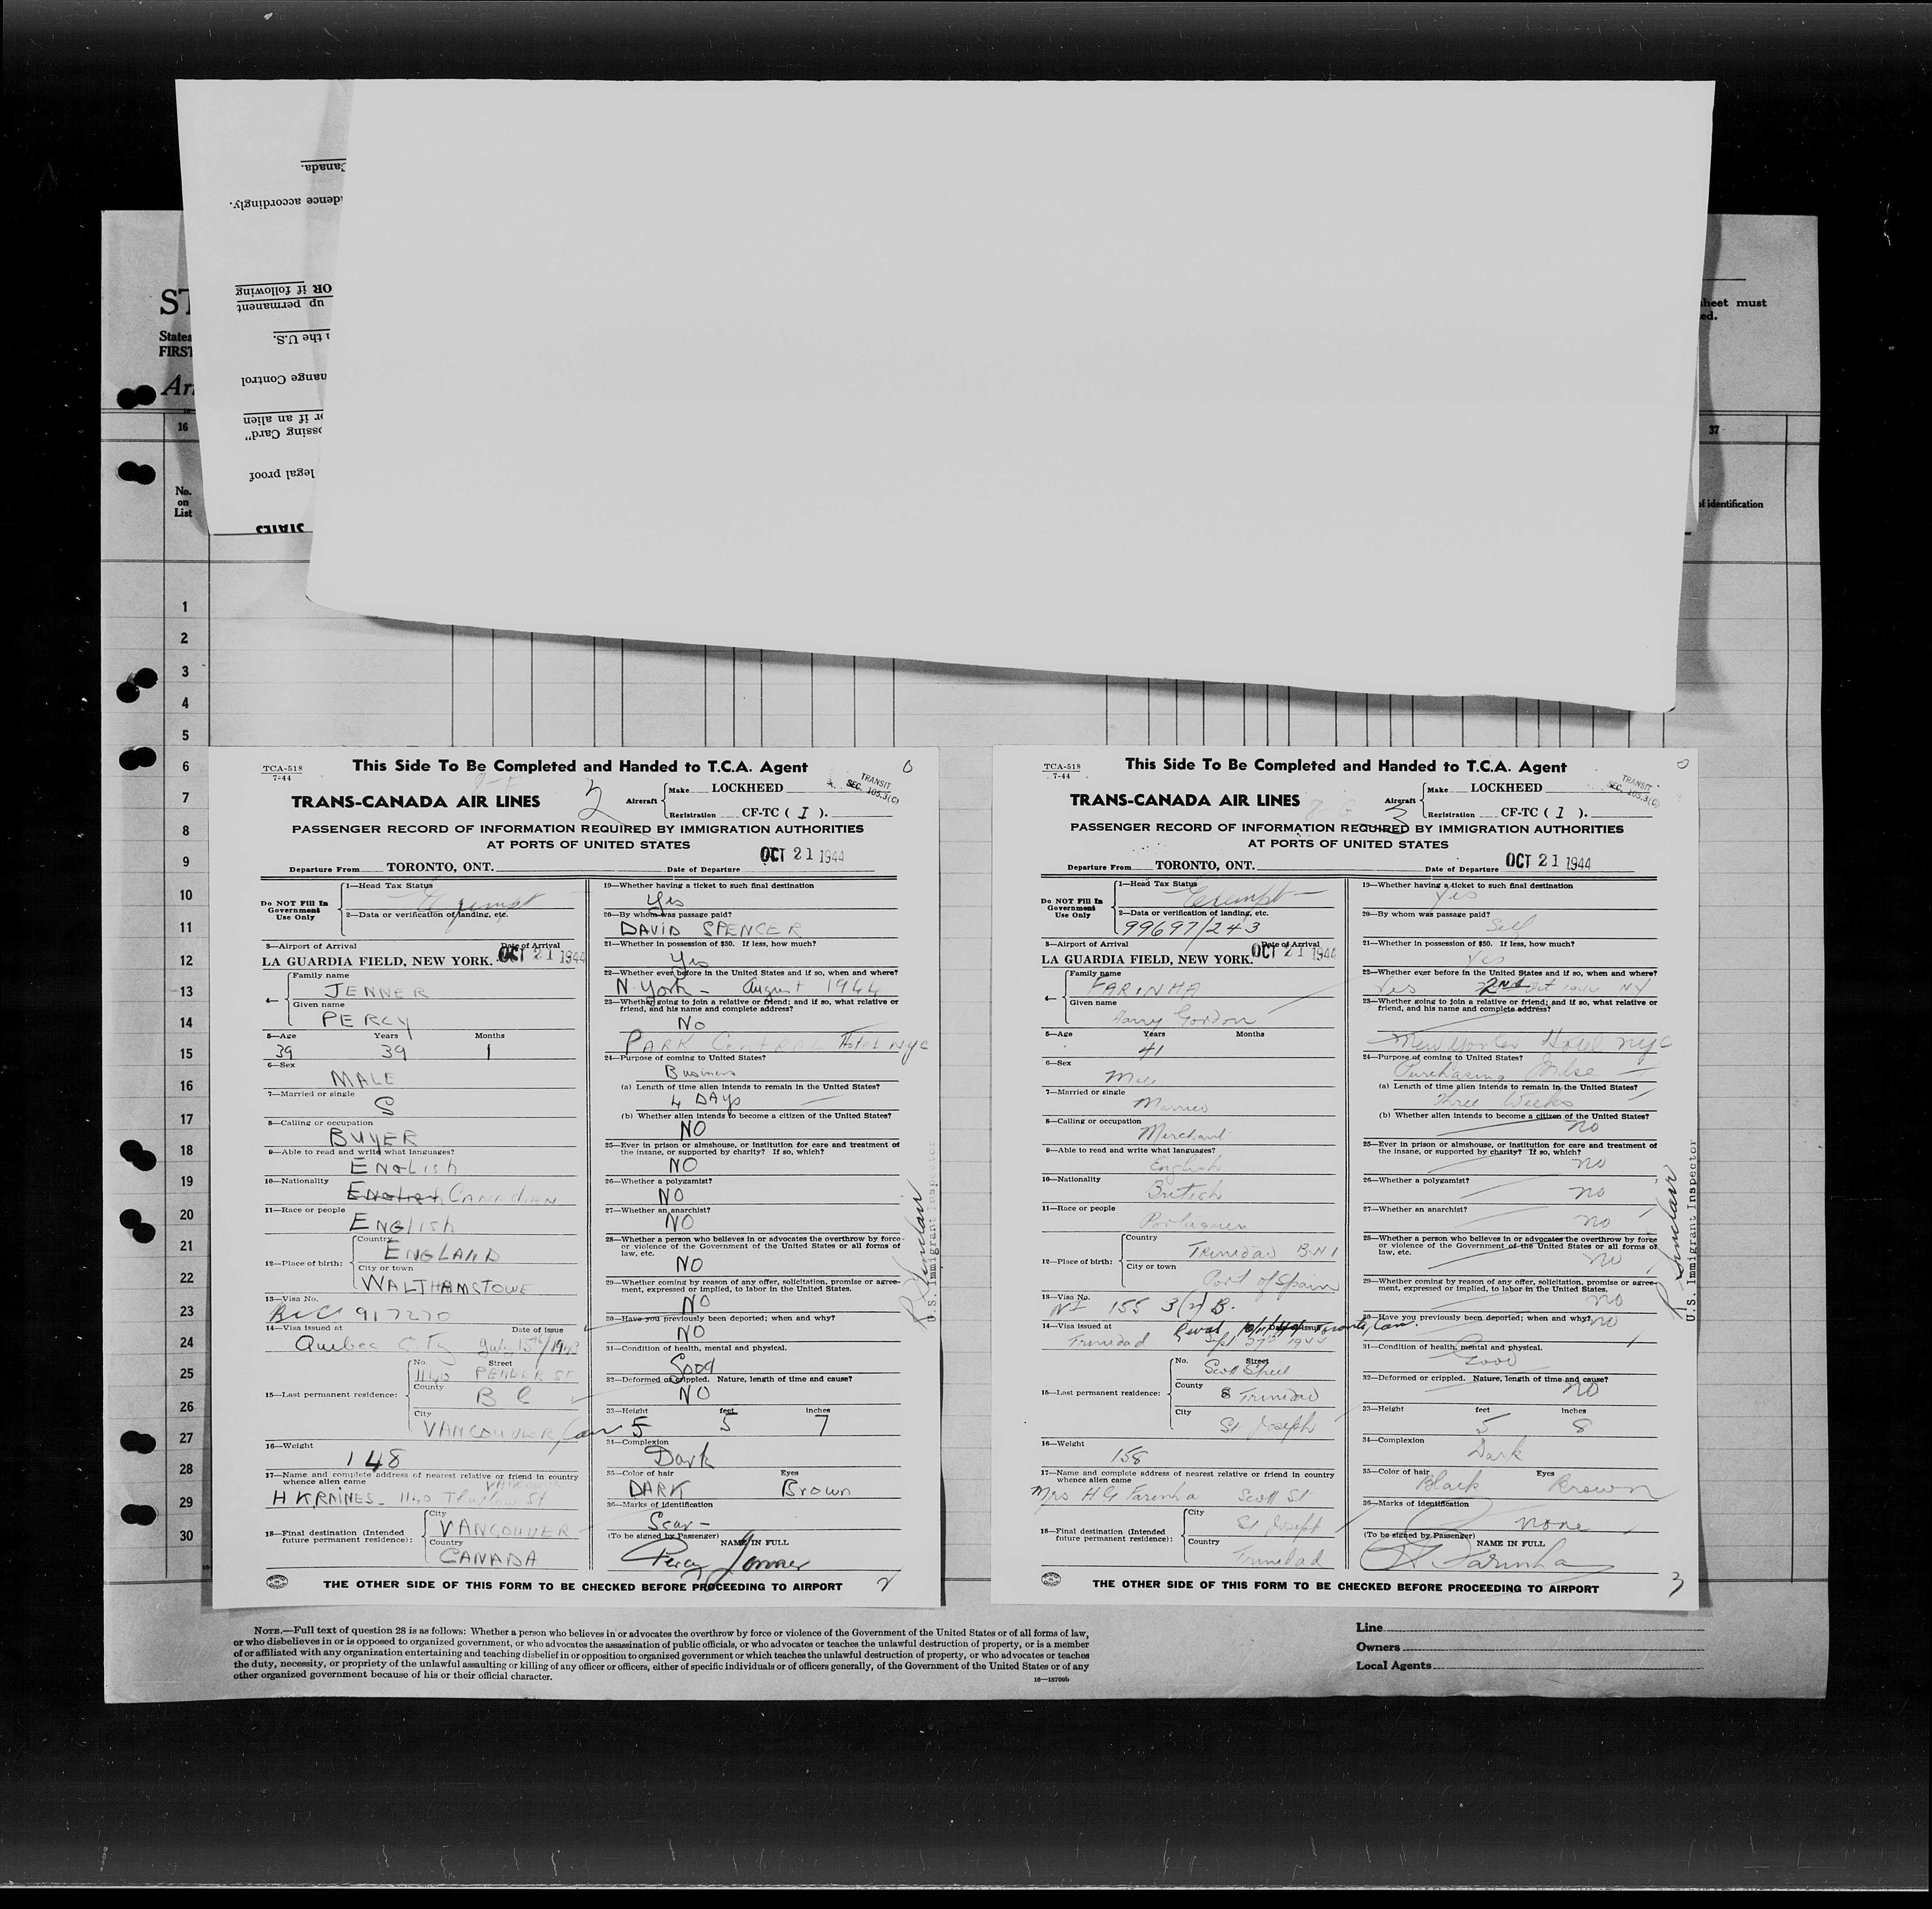 Canada.
dence accordingly.
OR if following
up permanent
n the U.S.
hange Control
or if an alien
ossing Card"
legal proof
STATES
States
FIRST
heet must
ed.
16
37
No.
on
List
of identification
1
2
3
4
5
6
7
8
9
10
11
12
13
14
15
16
17
18
19
20
21
22
23
24
25
26
27
28
29
30
TCA-518
7-44
This Side To Be Completed and Handed to T.C.A. Agent
TRANSIT
SEC. 105.3(C)
TRANS-CANADA AIR LINES
2
Aircraft
Make LOCKHEED
Registration CF-TC ( I ).
PASSENGER RECORD OF INFORMATION REQUIRED BY IMMIGRATION AUTHORITIES
AT PORTS OF UNITED STATES
Departure From TORONTO, ONT. Date of Departure OCT 21 1944
Do NOT Fill In
Government
Use Only
1—Head Tax Status
Exempt
2—Data or verification of landing, etc.
3—Airport of Arrival Date of Arrival
LA GUARDIA FIELD, NEW YORK. OCT 21 1944
4—
Family name
JENNER
Given name
PERCY
5—Age Years Months
39 39 1
6—Sex
MALE
7—Married or single
S
8—Calling or occupation
BUYER
9—Able to read and write what languages?
ENGLISH
10—Nationality
English CANADIAN
11—Race or people
ENGLISH
12—Place of birth:
Country
ENGLAND
City or town
WALTHAMSTOWE
13—Visa No.
BCC 917270
14—Visa issued at Date of issue
Quebec City July 15th/1943
15—Last permanent residence:
No. Street
1140 PENDER ST
County
B C
City
VANCOUVER, Can
16—Weight
148
17—Name and complete address of nearest relative or friend in country
whence alien came
VANCOUVER
H KRAINES 1140 St
18—Final destination (Intended
future permanent residence):
City
VANCOUVER
Country
CANADA
19—Whether having a ticket to such final destination
Yes
20—By whom was passage paid?
DAVID SPENCER
21—Whether in possession of $50. If less, how much?
Yes
22—Whether ever before in the United States and if so, when and where?
N. York - August 1944
23—Whether going to join a relative or friend; and if so, what relative or
friend, and his name and complete address?
No
PARK CENTRAL Hotel NYC
24—Purpose of coming to United States?
Business
(a) Length of time alien intends to remain in the United States?
4 DAYS
(b) Whether alien intends to become a citizen of the United States?
NO
25—Ever in prison or almshouse, or institution for care and treatment of
the insane, or supported by charity? If so, which?
NO
26—Whether a polygamist?
NO
27—Whether an anarchist?
NO
28—Whether a person who believes in or advocates the overthrow by force
or violence of the Government of the United States or all forms of
law, etc.
NO
29—Whether coming by reason of any offer, solicitation, promise or agree-
ment, expressed or implied, to labor in the United States.
NO
30—Have you previously been deported; when and why?
NO
31—Condition of health, mental and physical.
Good
32—Deformed or crippled. Nature, length of time and cause?
NO
33—Height feet inches
5 5 7
34—Complexion
Dark
35—Color of hair Eyes
DARK Brown
36—Marks of identification
Scar -
(To be signed by Passenger) NAME IN FULL
Percy Jenner
U.S. Immigrant Inspector
Sinclair
THE OTHER SIDE OF THIS FORM TO BE CHECKED BEFORE PROCEEDING TO AIRPORT
2
TCA-518
7-44
This Side To Be Completed and Handed to T.C.A. Agent
TRANSIT
SEC. 105.3(C)
TRANS-CANADA AIR LINES
3
Aircraft
Make LOCKHEED
Registration CF-TC ( I ).
PASSENGER RECORD OF INFORMATION REQUIRED BY IMMIGRATION AUTHORITIES
AT PORTS OF UNITED STATES
Departure From TORONTO, ONT. Date of Departure OCT 21 1944
Do NOT Fill In
Government
Use Only
1—Head Tax Status
Exempt
2—Data or verification of landing, etc.
99697/243
3—Airport of Arrival Date of Arrival
LA GUARDIA FIELD, NEW YORK. OCT 21 1944
4—
Family name
FARINHA
Given name
Harry Gordon
5—Age Years Months
41
6—Sex
Male
7—Married or single
Married
8—Calling or occupation
Merchant
9—Able to read and write what languages?
English
10—Nationality
British
11—Race or people
Portuguese
12—Place of birth:
Country
Trinidad B.W.I
City or town
Port of Spain
13—Visa No.
NI 155 3(2) B.
14—Visa issued at Date of issue
Toronto, Can.
Trinidad Sept 27th 1944
15—Last permanent residence:
No. Street
Scott Street
County
Trinidad
City
St Joseph
16—Weight
158
17—Name and complete address of nearest relative or friend in country
whence alien came
Mrs H G Farinha Scott St
18—Final destination (Intended
future permanent residence):
City
St Joseph
Country
Trinidad
19—Whether having a ticket to such final destination
Yes
20—By whom was passage paid?
Self
21—Whether in possession of $50. If less, how much?
Yes
22—Whether ever before in the United States and if so, when and where?
Yes 2nd Oct 1944 NY
23—Whether going to join a relative or friend; and if so, what relative or
friend, and his name and complete address?
New Yorker Hotel NYC
24—Purpose of coming to United States?
Purchasing Mdse
(a) Length of time alien intends to remain in the United States?
Three Weeks
(b) Whether alien intends to become a citizen of the United States?
no
25—Ever in prison or almshouse, or institution for care and treatment of
the insane, or supported by charity? If so, which?
no
26—Whether a polygamist?
no
27—Whether an anarchist?
no
28—Whether a person who believes in or advocates the overthrow by force
or violence of the Government of the United States or all forms of
law, etc.
no
29—Whether coming by reason of any offer, solicitation, promise or agree-
ment, expressed or implied, to labor in the United States.
no
30—Have you previously been deported; when and why?
no
31—Condition of health, mental and physical.
Good
32—Deformed or crippled. Nature, length of time and cause?
no
33—Height feet inches
5 8
34—Complexion
Dark
35—Color of hair Eyes
Black Brown
36—Marks of identification
none
(To be signed by Passenger) NAME IN FULL
H Farinha
U.S. Immigrant Inspector
Sinclair
THE OTHER SIDE OF THIS FORM TO BE CHECKED BEFORE PROCEEDING TO AIRPORT
3
NOTE.—Full text of question 28 is as follows: Whether a person who believes in or advocates the overthrow by force or violence of the Government of the United States or of all forms of law,
or who disbelieves in or is opposed to organized government, or who advocates the assassination of public officials, or who advocates or teaches the unlawful destruction of property, or is a member
of or affiliated with any organization entertaining and teaching disbelief in or opposition to organized government or which teaches the unlawful destruction of property, or who advocates or teaches
the duty, necessity, or propriety of the unlawful assaulting or killing of any officer or officers, either of specific individuals or of officers generally, of the Government of the United States or of any
other organized government because of his or their official character.
16—18709b
Line
Owners
Local Agents